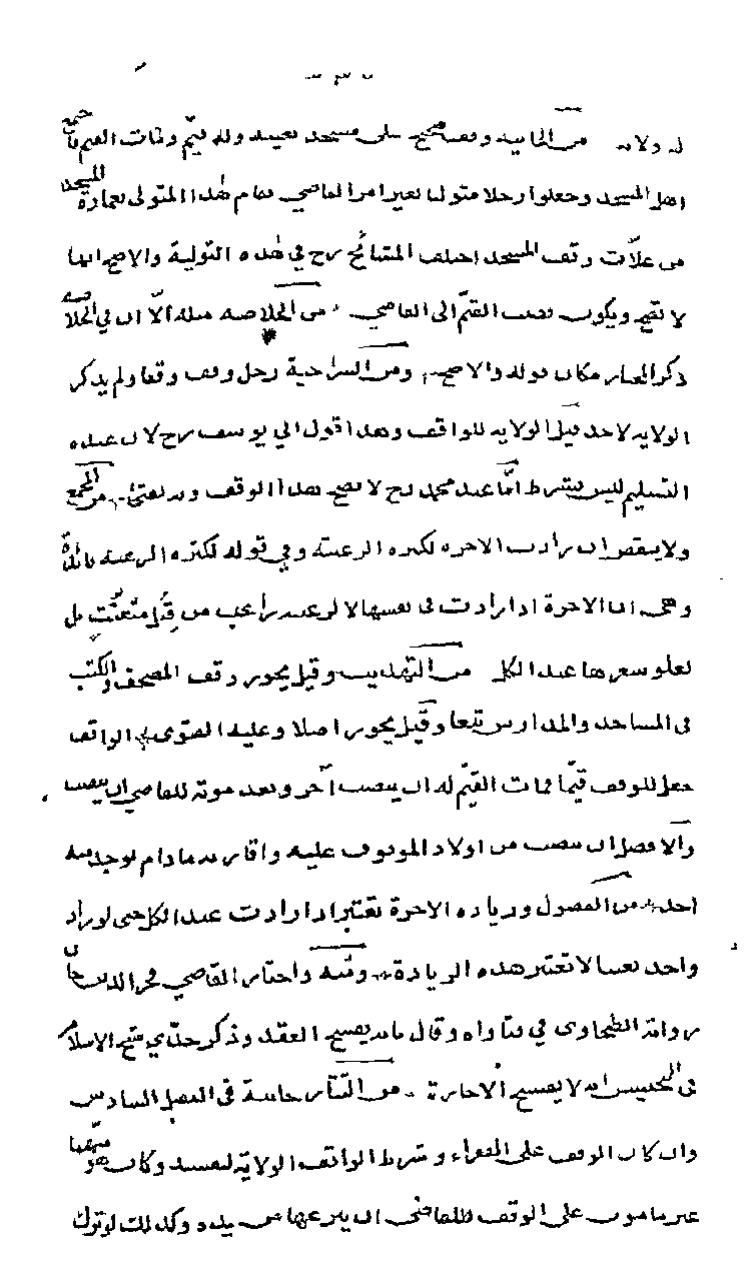 له ولاية من الخانية وقف صحيح على مسجد بعينه وله قيم ومات القيم
اهل المسجد وجعلوا رجلا متوليا بغير امر القاضي فقام هذا المتولى بعمارة المسجد
من غلات وقف المسجد اختلف المشائخ رح في هذه التولية والاصح انها
لا تصح ويكون نصب القيم الى القاضي من الخلاصة مثله الا ان في الخلاصة
ذكر المختار مكان قوله والاصح ومن السراجية رجل وقف وقفا ولم يذكر
الولاية لاحد قيل الولاية للواقف وهذا قول ابي يوسف رح لان عنده
التسليم ليس بشرط اما عند محمد رح لا يصح هذا الوقف وبه يفتى من المجمع
ولا ينقص ان زادت الاجرة لكثرة الرغبة وفي قوله لكثرة الرغبة فائدة
وهى ان الاجرة اذا زادت في نفسها لا لرغبة راغب من قبل متعنت بل
لغلو سعرها عند الكل من التهذيب وقيل يجوز وقف المصحف والكتب
في المساجد والمدارس تبعا وقيل يجوز اصلا وعليه الفتوى الواقف
جعل للوقف قيما فمات القيم له ان ينصب آخر وبعد موته للقاضي ان ينصب
والافضل ان ينصب من اولاد الموقوف عليه واقاربه ما دام يوجد منه
احد من الفصول وزيادة الاجرة تعتبر اذا زادت عند الكل حتى لو زاد
واحد تعنتا لا تعتبر هذه الزيادة ومنه واختار القاضي فخر الدين
رواية الطحاوى في فتاواه وقال بانه يفسخ العقد وذكر جدي شيخ الاسلام
في التجنيس انه لا يفسخ الاجارة من التتارخانية في الفصل السادس
وان كان الوقف على الفقراء وشرط الواقف الولاية لنفسه وكان هو متهما
غير مامون على الوقف فللقاضى ان ينزعها من يده وكذلك لو ترك